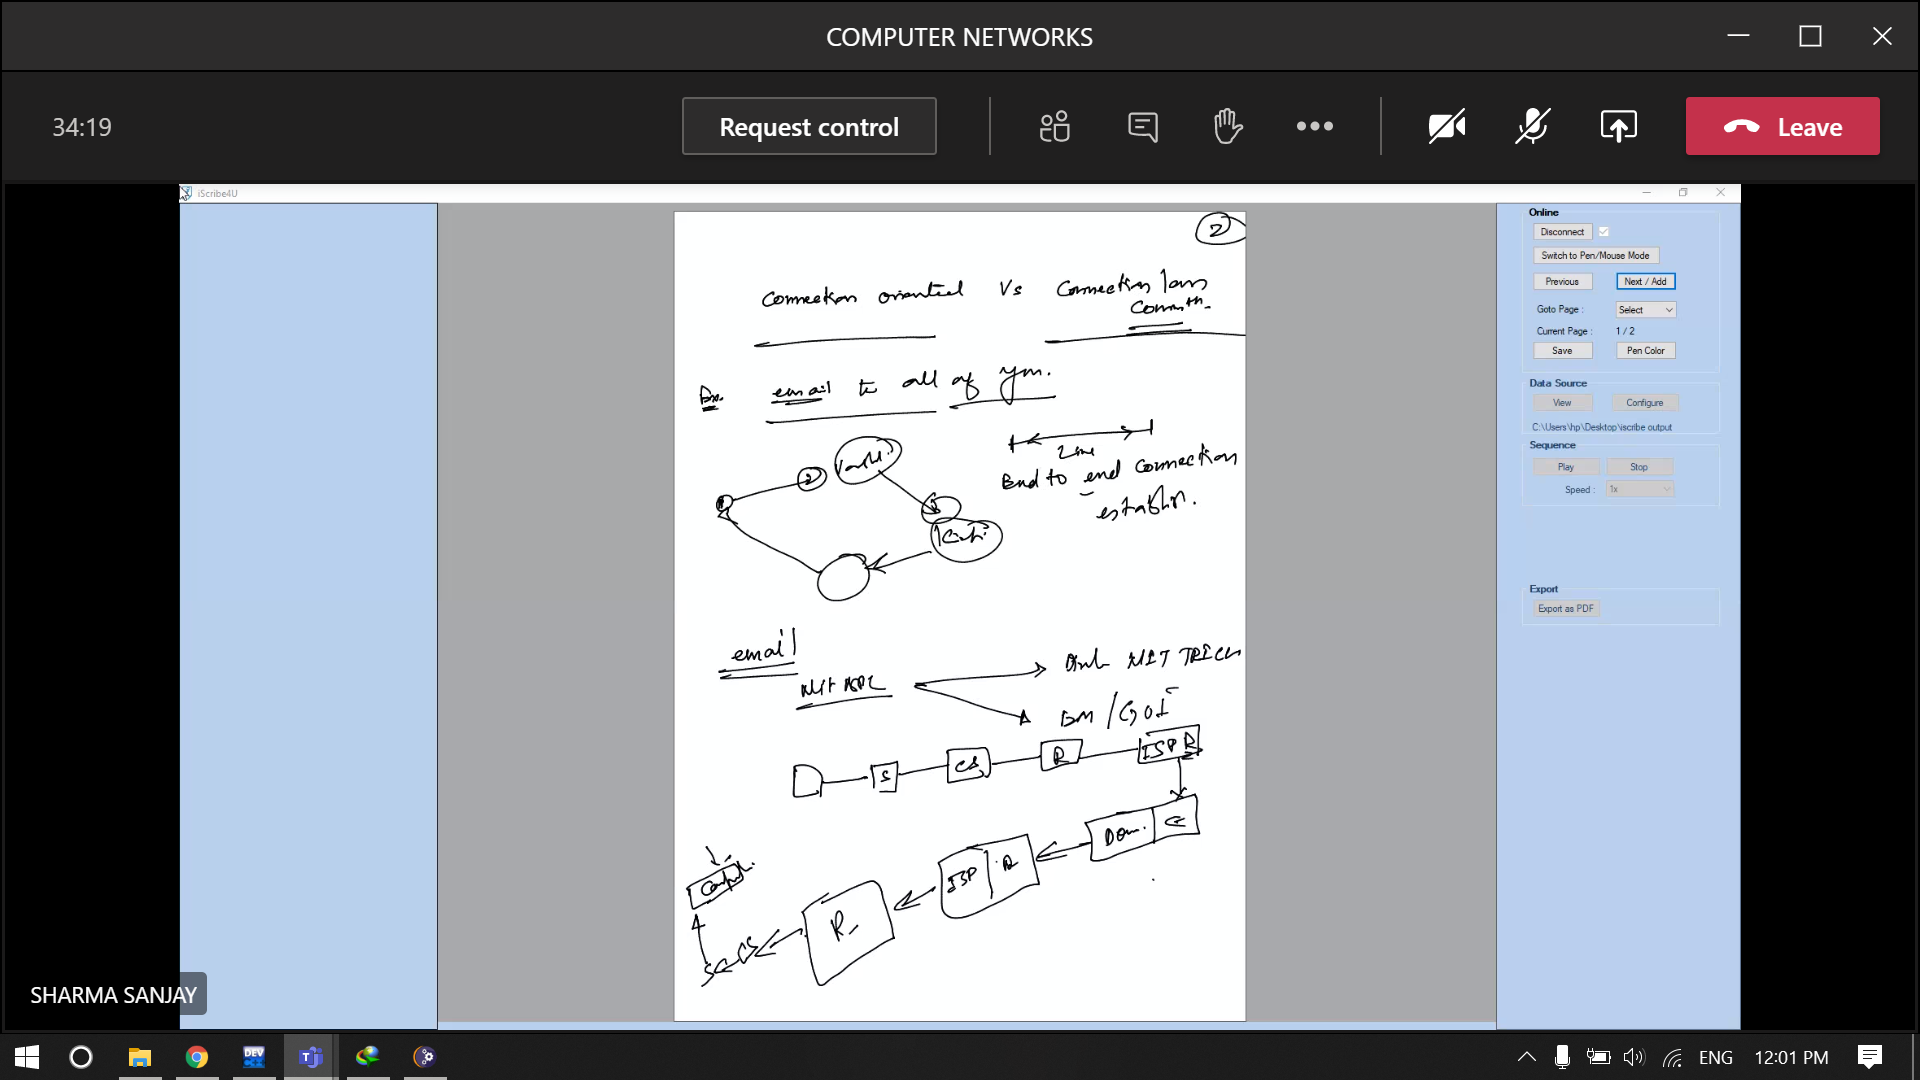 COMPUTER NETWORKS
34:19
Request control
Leave
iScribe4U
2
Connection oriented Vs Connection less
email to all of you.
2
Time
End to end connection
establish.
email
NIT
NIT TRICH
/GOI
S
CS
R
ISP R
Dom. G
ISP R
R
CS
S
Online
Disconnect
Switch to Pen/Mouse Mode
Previous Next / Add
Goto Page : Select
Current Page : 1 / 2
Save Pen Color
Data Source
View Configure
C:\Users\hp\Desktop\iscribe output
Sequence
Play Stop
Speed : 1x
Export
Export as PDF
SHARMA SANJAY
DEV
ENG 12:01 PM